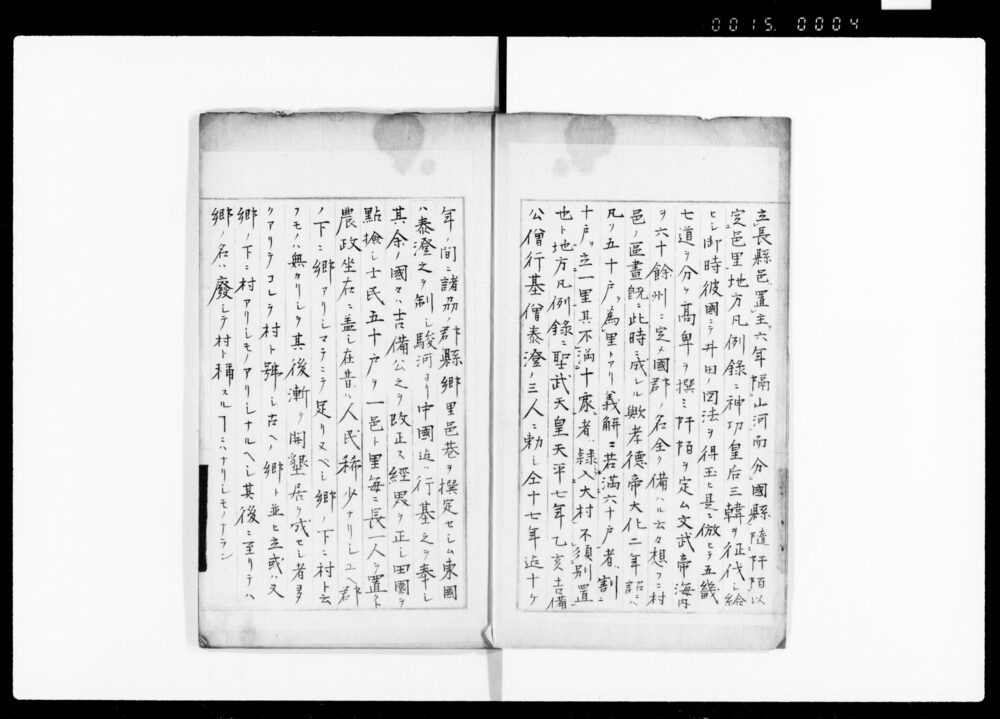 0015.0004
立長縣邑置主六年隔山河而分國縣隨阡陌以
定邑里地方凡例錄ニ神功皇后三韓ヲ征伐シ給
ヒシ御時彼國ニテ井田ノ図法ヲ得玉ヒ是ニ倣ヒテ五畿
七道ヲ分ケ高卑ヲ撰ミ阡陌ヲ定ム文武帝海内
ヲ六十餘州ニ定メ國郡ノ名全ク備ハル云々想フニ村
邑ノ區畫既ニ此時ニ成レル歟孝德帝大化二年詔ニハ
凡ソ五十戸ヲ為里トアリ義解ニ若滿六十戸者割
十戸ヲ立一里其不滿十家者隷入大村不須別置
也ト地方凡例錄ニ聖武天皇天平七年乙亥吉備
公僧行基僧泰澄ノ三人ニ勅シ仝十七年迄十ケ
年ノ間ニ諸刕ノ郡縣郷里邑巷ヲ撰定セシム東國
ハ泰澄之ヲ制シ駿河ヨリ中國迄ハ行基之ヲ奉シ
其余ノ國々ハ吉備公之ヲ改正ス經界ヲ正シ田園ヲ
點撿シ士民五十戸ヲ一邑ト里毎ニ長一人ヲ置クト
農政坐右ニ盖シ在昔ハ人民稀少ナリシユヘ郡
ノ下ニ郷アリシマテニテ足リヌベシ郷ノ下ニ村ト云
フモノハ無カリシヲ其後漸ク開墾居ヲ成セシ者多
クアリテコレヲ村ト號シ古ヘノ郷ト並ヒ立或ハ又
郷ノ下ニ村アリシモノアリシナルヘシ其後ニ至リテハ
郷ノ名ハ廢シテ村ト稱スルコトニハナリシモノナラン